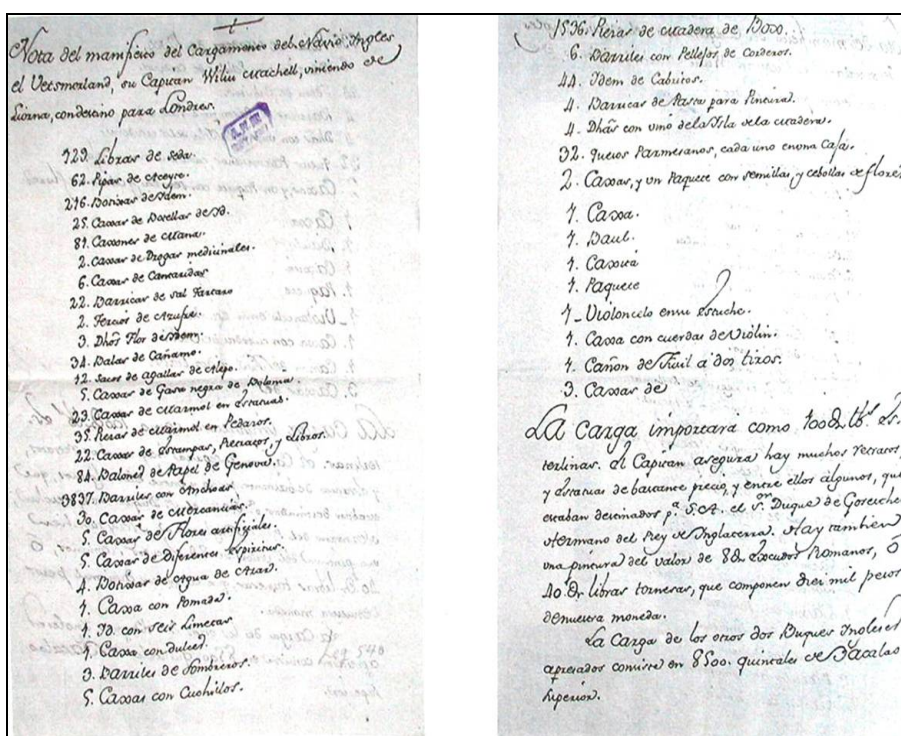 Nota del manifiesto del Cargamento del Navio Ingles
el Vetsmerland, su Capitan Wiliis Machell, viniendo de
Liorna, con destino para Londres.
123. Libras de seda.
62. Pipas de Aceyte.
216. Botixas de Idem.
25. Caxas de Botellas de Yd.
81. Caxones de Mana.
2. Caxas de Drogas medicinales.
6. Caxas de Cantaridas
22. Barricas de sal Tartaro
2. Tercios de Azufre.
3. Dhos Flor de Idem.
34. Balas de Cañamo.
12. Sacos de agallas de Alepo.
5. Caxas de Gasa negra de Bolonia
23. Caxas de Marmol en Estatuas.
35. Piezas de Marmol en Pedazos.
22. Caxas de Estampas, Retratos, y Libros.
84. Balones de Papel de Genova.
3837. Barriles con Anchoas
30. Caxas de Mercancias.
5. Caxas de Flores artificiales.
5. Caxas de Diferentes Espiritus.
4. Botixas de Agua de Azar.
1. Caxa con Pomada.
1. Id. con seis Limetas
1. Caxa con dulces.
3. Barriles de Sombreros.
5. Caxas con Cuchillos.
1536. Piezas de madera de Boxo.
6. Barriles con Pellejos de Corderos.
44. Idem de Cabritos.
4. Barricas de Pasta para Pintura.
4. Dhas con vino de la Isla de la Madera.
32. quesos Parmesanos, cada uno en una Caja.
2. Caxas, y un Paquete con semillas, y cebollas de flores
1. Caxa.
1. Baul.
1. Caxita
1. Paquete
1_ Violoncelo en su Estuche.
1. Caxa con cuerdas de Violin.
1. Cañon de Fusil à dos tiros.
3. Caxas de
La Carga importará como 100 D. Lbs. Es-
terlinas. El Capitan asegura hay muchos retratos,
y Estatuas de bastante precio, y entre ellos algunos, que
estaban destinados pa. S.A. el Sor. Duque de Glocester
Hermano del Rey de Inglaterra. Hay tambien
una pintura del valor de 8 D. Escudos Romanos, ó
40 D. libras tornesas, que componen diez mil pesos
de nuestra moneda.
La Carga de los otros dos Buques Ingleses
apresados consiste en 8500. quintales de Bacalao
superior.